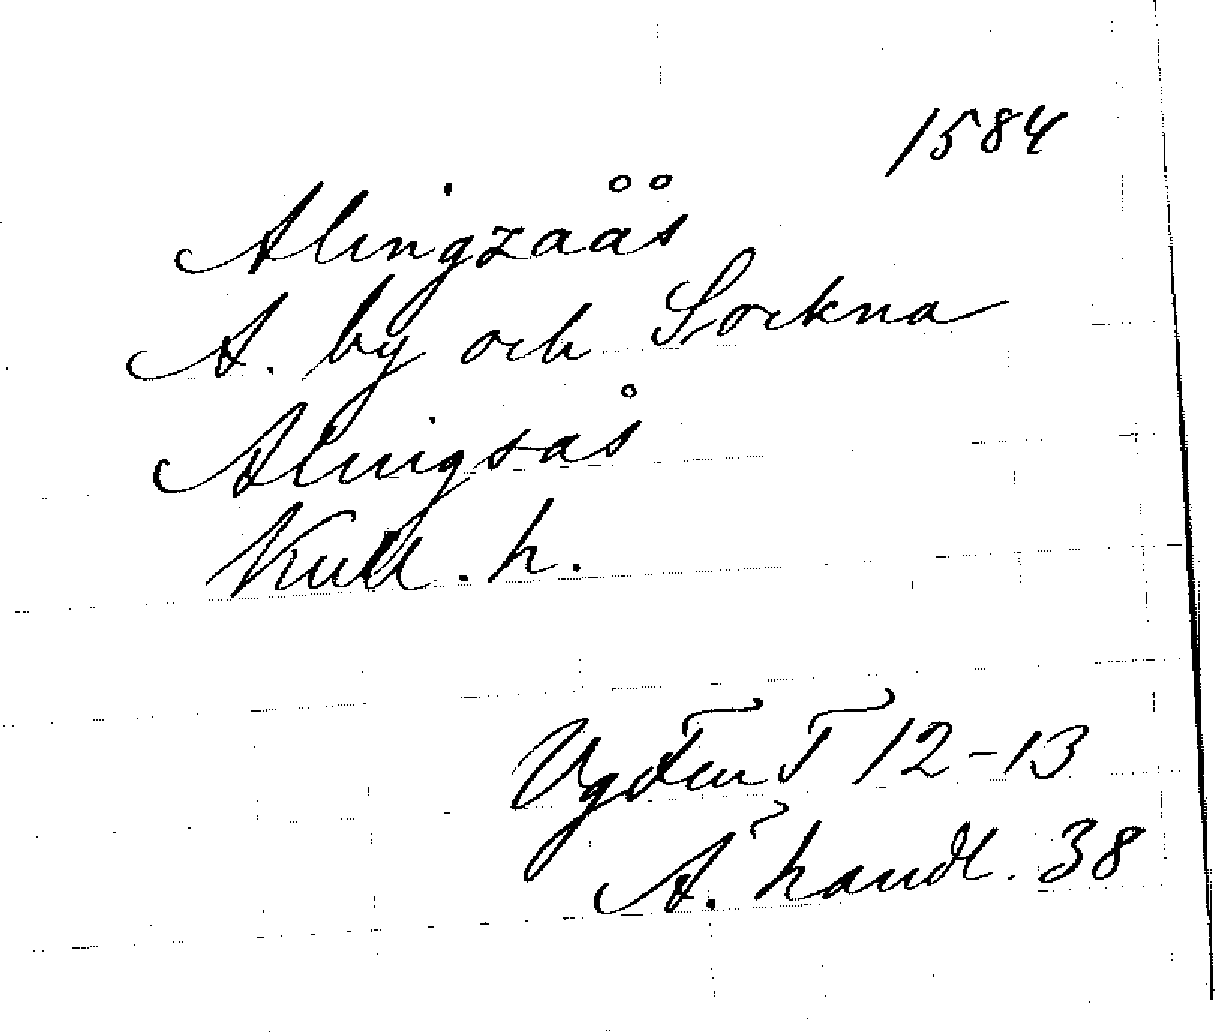 1584
Alingzåås
A. by och Sockna
Alingsås
Kull. h.
Vg T 12-13
A. handl. 38